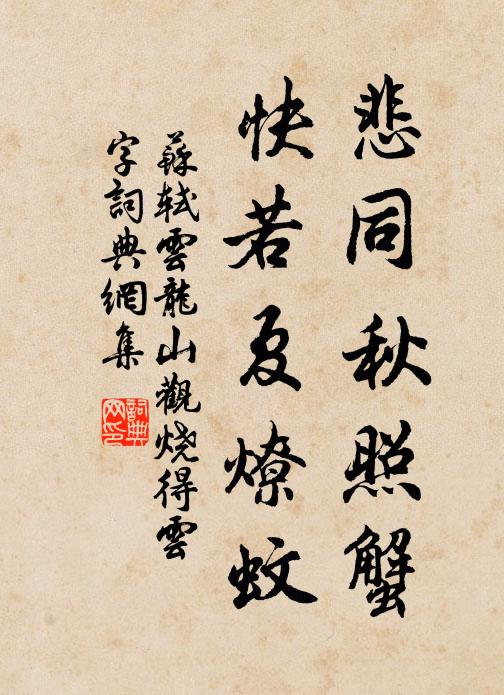 悲同秋照蟹
快若夏燎蚊
蘇軾雲龍山觀燒得雲
字詞典網集
詞典
网印